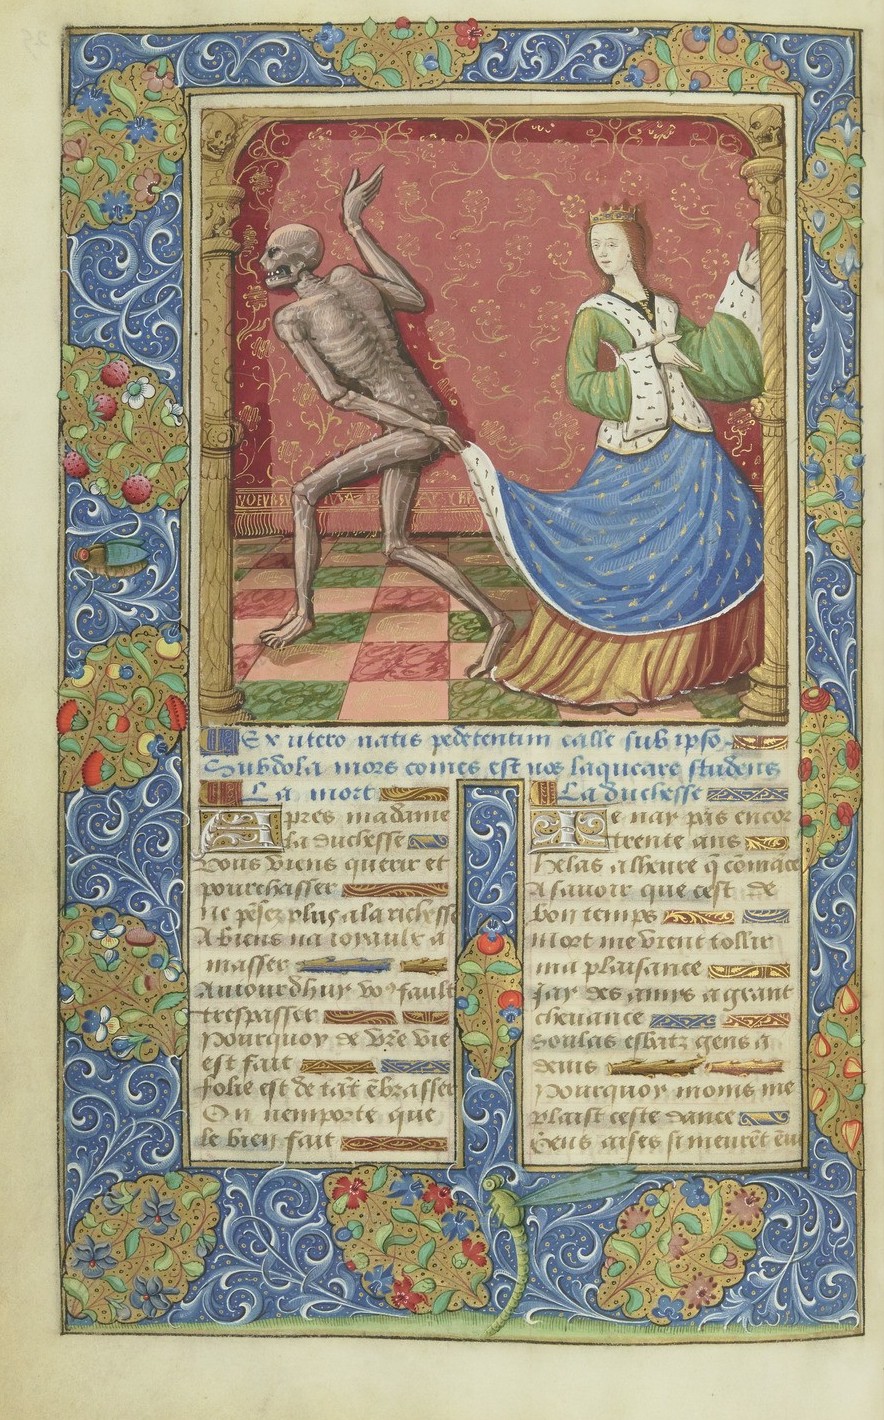 Ex utero natis pedetentim calle sub ipso
Subdola mors comes est nos laqueare studens
La mort
Apres madame
la duchesse
Vous viens querir et
pourchasser
Ne pẽsez plus a la richesse
A biens na ioyaulx a
masser
Auiourdhuy voꝰ fault
trespasser
Pourquoy de vr̃e vie
est fait
folie est de tãt ẽbrasser
On nemporte que
le bien fait
La duchesse
Je nay pas encor
trente ans
helas a lheure q̃ cõmãce
A sauoir que cest de
bon temps
Mort me vient tollir
ma plaisance
Jay des amys a grant
cheuance
Soulas esbatz gens a
deuis
Pourquoy moins me
plaist ceste dance
Gens aises si meurẽt